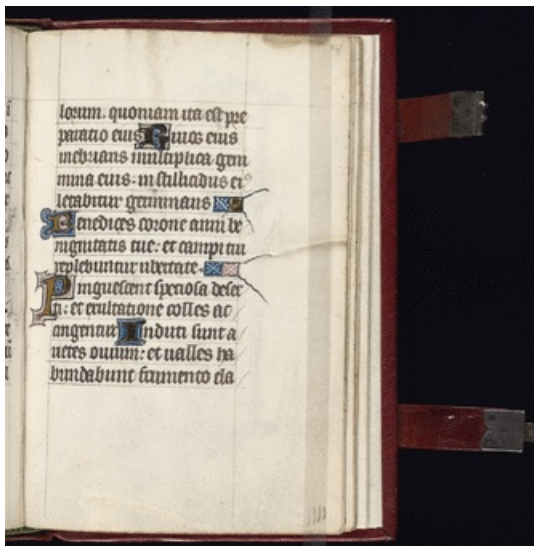 lorum. quoniam ita est pre
paratio eius Riuos eius
inebrians multiplica gem
mina eius: in stillicidus ei
letabitur germinans
Benedices corone anni be
nignitatis tue: et campi tui
replebuntur ubertate.
Pinguescent speciosa deser
ti: et exultatione colles ac
cingentur Induti sunt a
rietes ouium: et ualles ha
bundabunt frumento cla